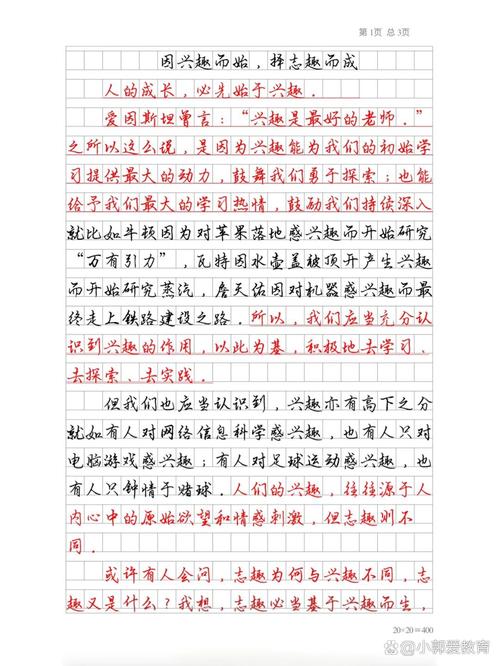 第1页 总3页
因兴趣而始，择志趣而成
人的成长，必先始于兴趣．
爱因斯坦曾言：“兴趣是最好的老师．”
之所以这么说，是因为兴趣能为我们的初始学
习提供最大的动力，鼓舞我们勇于探索；也能
给予我们最大的学习热情，鼓励我们持续深入
就比如牛顿因为对苹果落地感兴趣而开始研究
“万有引力”，瓦特因水壶盖被顶开产生兴趣
而开始研究蒸汽，詹天佑因对机器感兴趣而最
终走上铁路建设之路．所以，我们应当充分认
识到兴趣的作用，以此为基，积极地去学习、
去探索、去实践．
但我们也应当认识到，兴趣亦有高下之分
就如有人对网络信息科学感兴趣，也有人只对
电脑游戏感兴趣；有人对足球运动感兴趣，也
有人只钟情于赌球．人们的兴趣，往往源于人
内心中的原始欲望和情感刺激，但志趣则不
同．
或许有人会问，志趣为何与兴趣不同，志
趣又是什么？我想，志趣必当基于兴趣而生，
20×20=400
@小郭爱教育